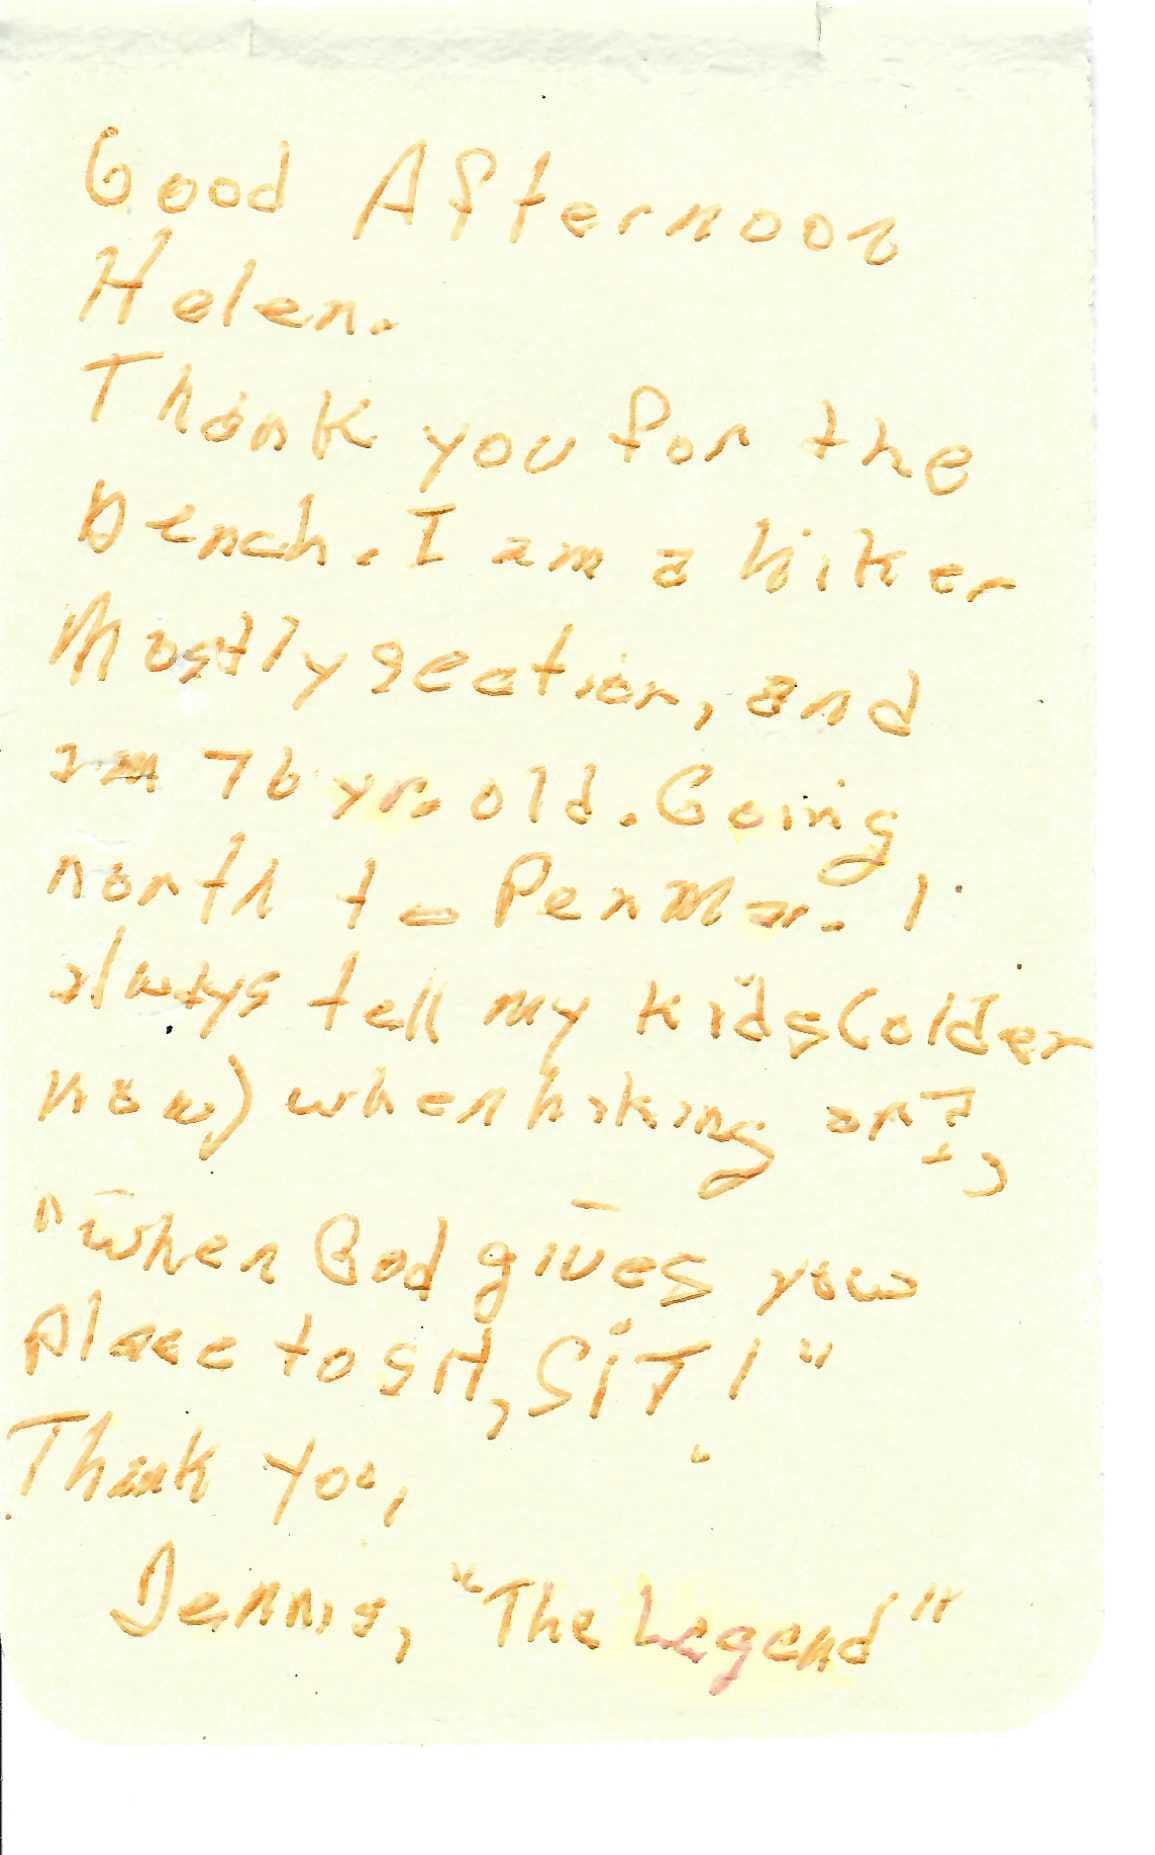 Good Afternoon
Helen.
Thank you for the
bench. I am a hiker
Mostly section, and
am 76 yr. old. Going
north to PenMar. I
always tell my kids (older
now) when hiking
"when God gives you
place to sit, SiT!"
Thank you,
Dennis, "The Legend"